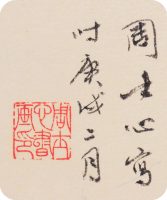 周士心寫
时庚戌二月
周士心書畫印